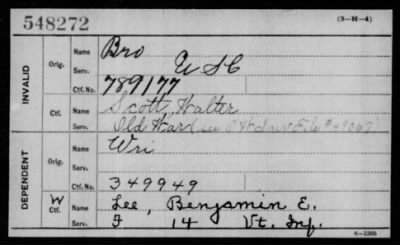 548272
(3-H-4)
INVALID
Orig.
Name Bro
Serv. U S C
Ctf. No. 789177
Ctf.
Name Scott, Walter
Serv. Old War (see
DEPENDENT
Orig.
Name Wri
Serv.
Ctf. No. 349949
W
Ctf.
Name Lee, Benjamin E.
Serv. F 14 Vt. Inf.